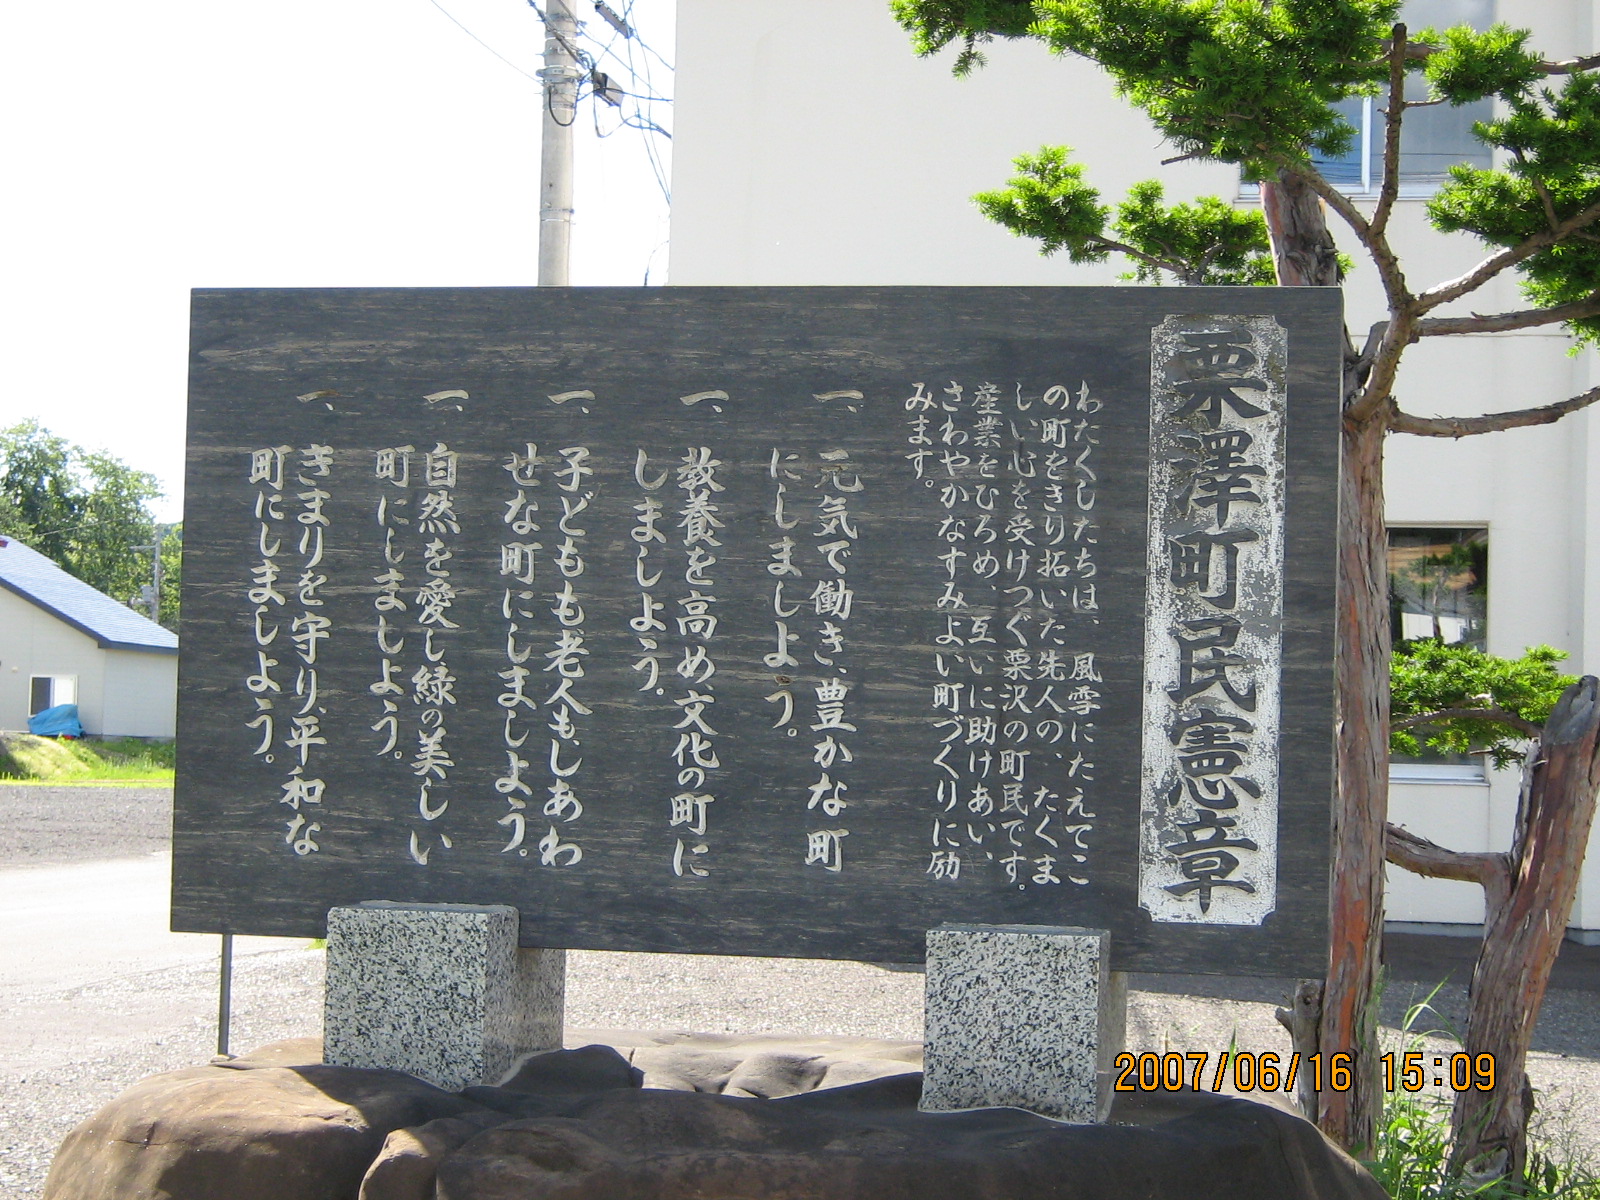 栗澤町民憲章
わたくしたちは、風雪にたえてこ
の町をきり拓いた先人の、たくま
しい心を受けつぐ栗沢の町民です。
産業をひろめ、互いに助けあい、
さわやかなすみよい町づくりに励
みます。
一、元気で働き、豊かな町
にしましよう。
一、教養を高め、文化の町に
しましよう。
一、子どもも老人も、しあわ
せな町にしましよう。
一、自然を愛し緑の美しい
町にしましよう。
一、きまりを守り、平和な
町にしましよう。
2007/06/16 15:09